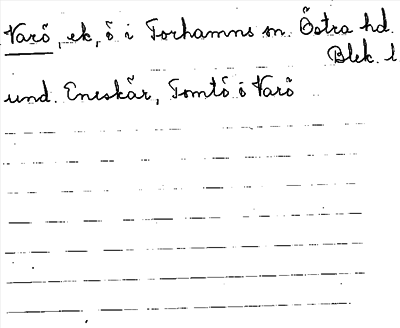 Varö, ek, ö i Torhamns sn. Östra hd.
Blek. l
und. Eneskär, Tomtö o Varö